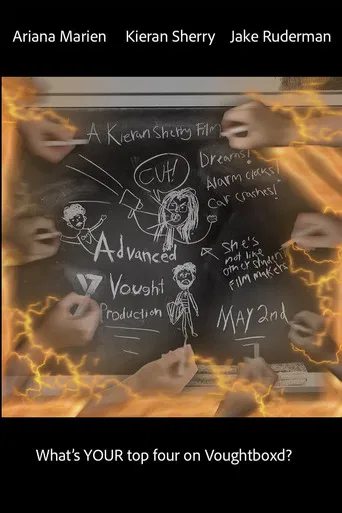 Ariana Marien Kieran Sherry Jake Ruderman
A Kieran Sherry Film
Dreams!
Alarm clocks!
Car crashes!
CUT!
She's
not like
other student
film makers
Advanced
Vought
Production
MAY 2nd
What's YOUR top four on Voughtboxd?